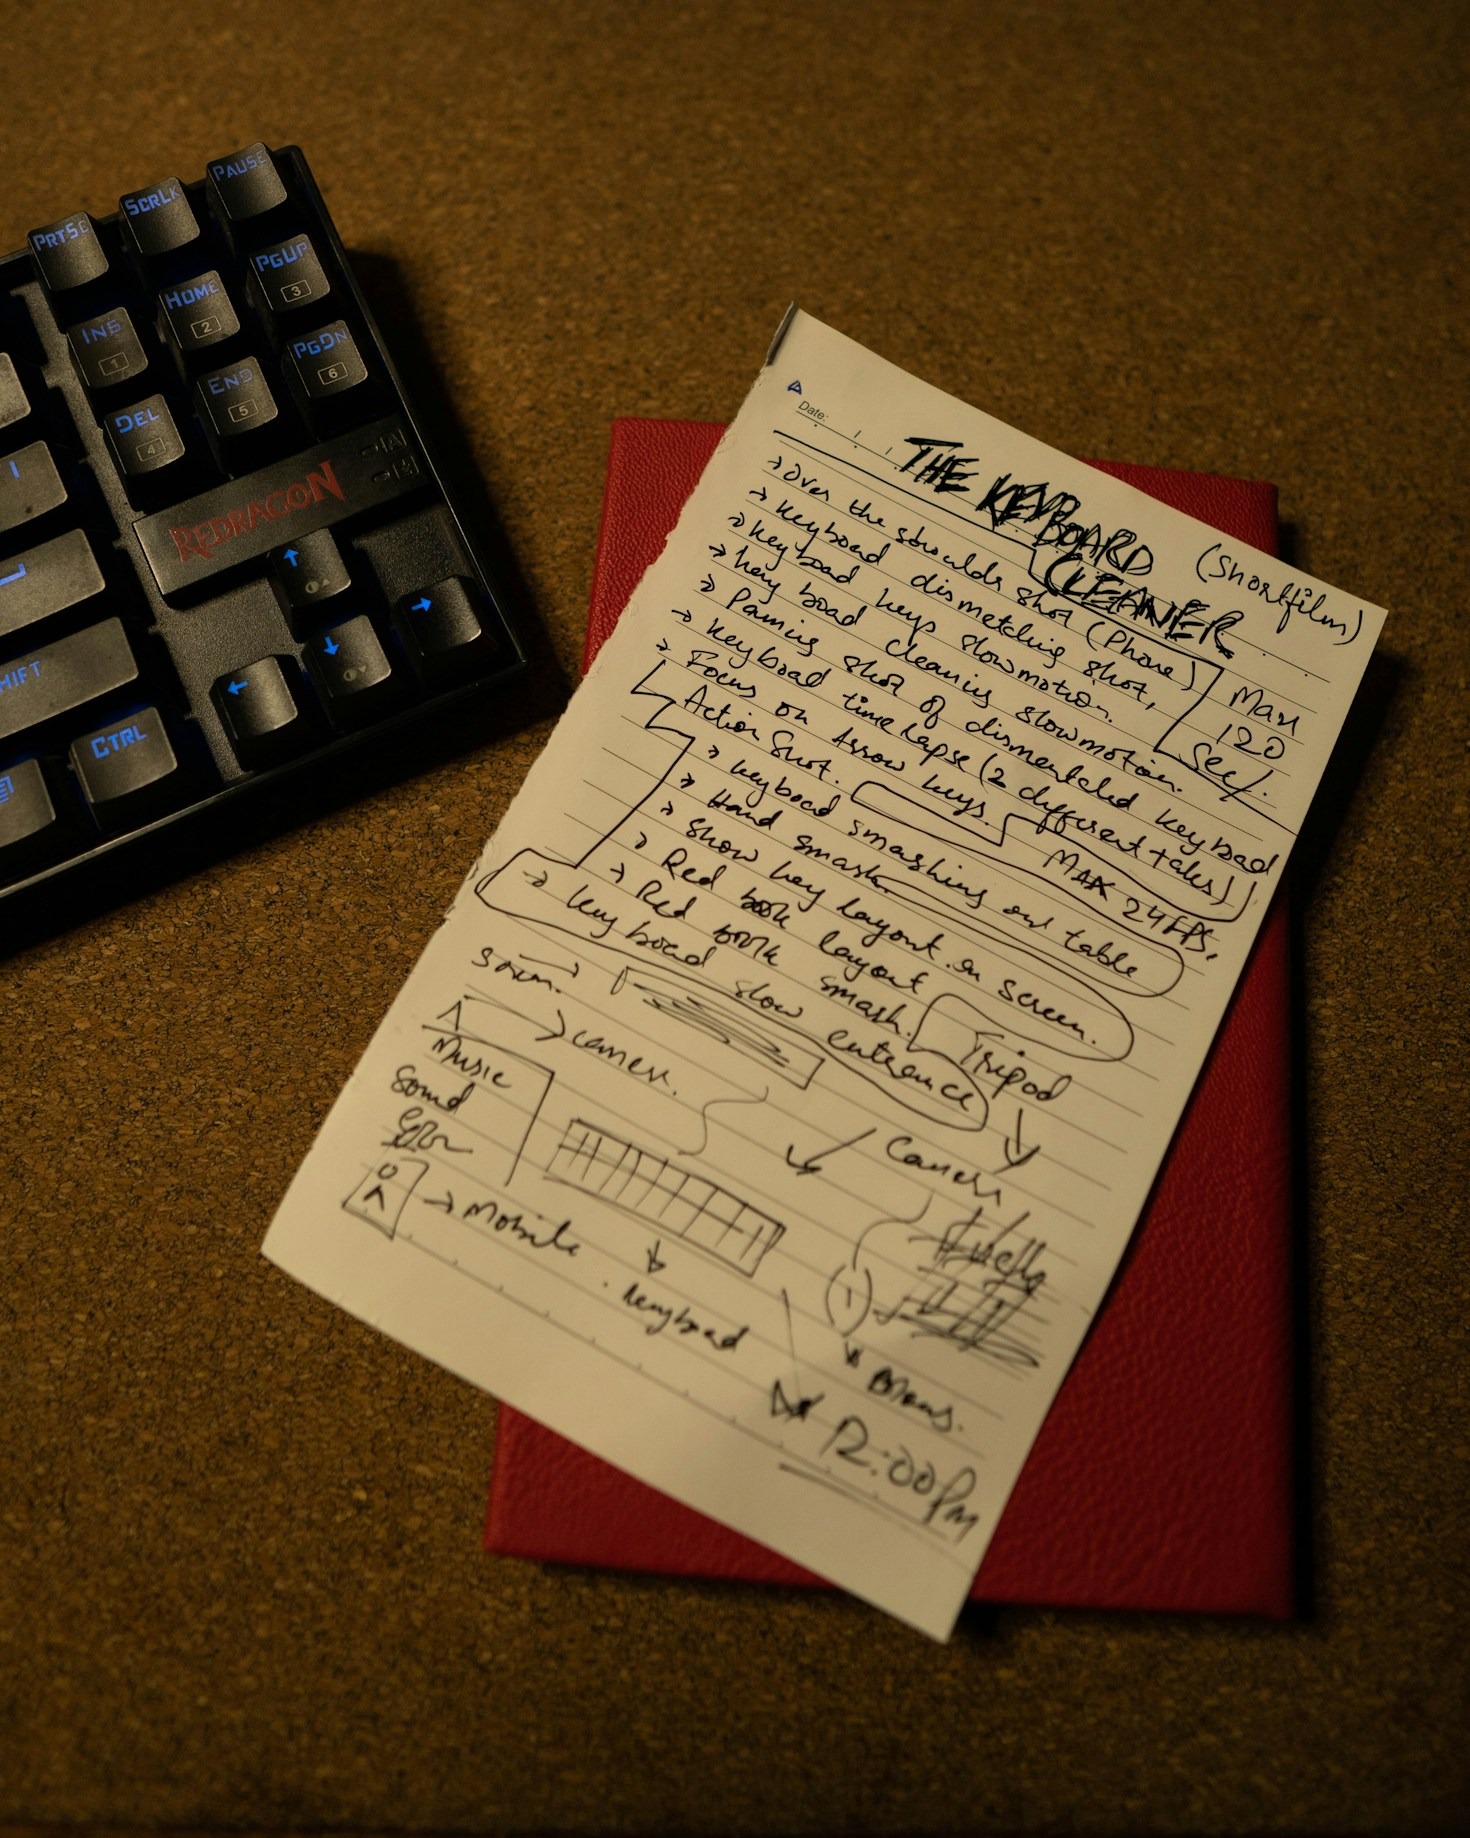 PRTSC
SCRLK
PAUSE
INS
1
HOME
2
PGUP
3
DEL
4
END
5
PGDN
6
REDRAGON
SHIFT
CTRL
Date:
THE KEYBOARD
CLEANER
(Shortfilm)
→ Over the shoulder shot (Phone)
→ keyboard dismetling shot,
→ keyboad keys slowmotion.
→ key boad cleaning slowmotion.
→ Paning shot of dismentcled keyboad
→ keyboad timelapse (2 different takes)
→ Focus on Arrow keys.
Action Shot.
Max
120
Sec/.
MAX 24 FPS,
→ keyboad smashing on table
→ Hand smash
→ Show key layout on screen.
→ Red book layout
→ Red book smash.
→ key boad slow entrance
Tripod
→ camera.
Music
Sound
Camera
→ Mobile
keyboad
12:00 Pm